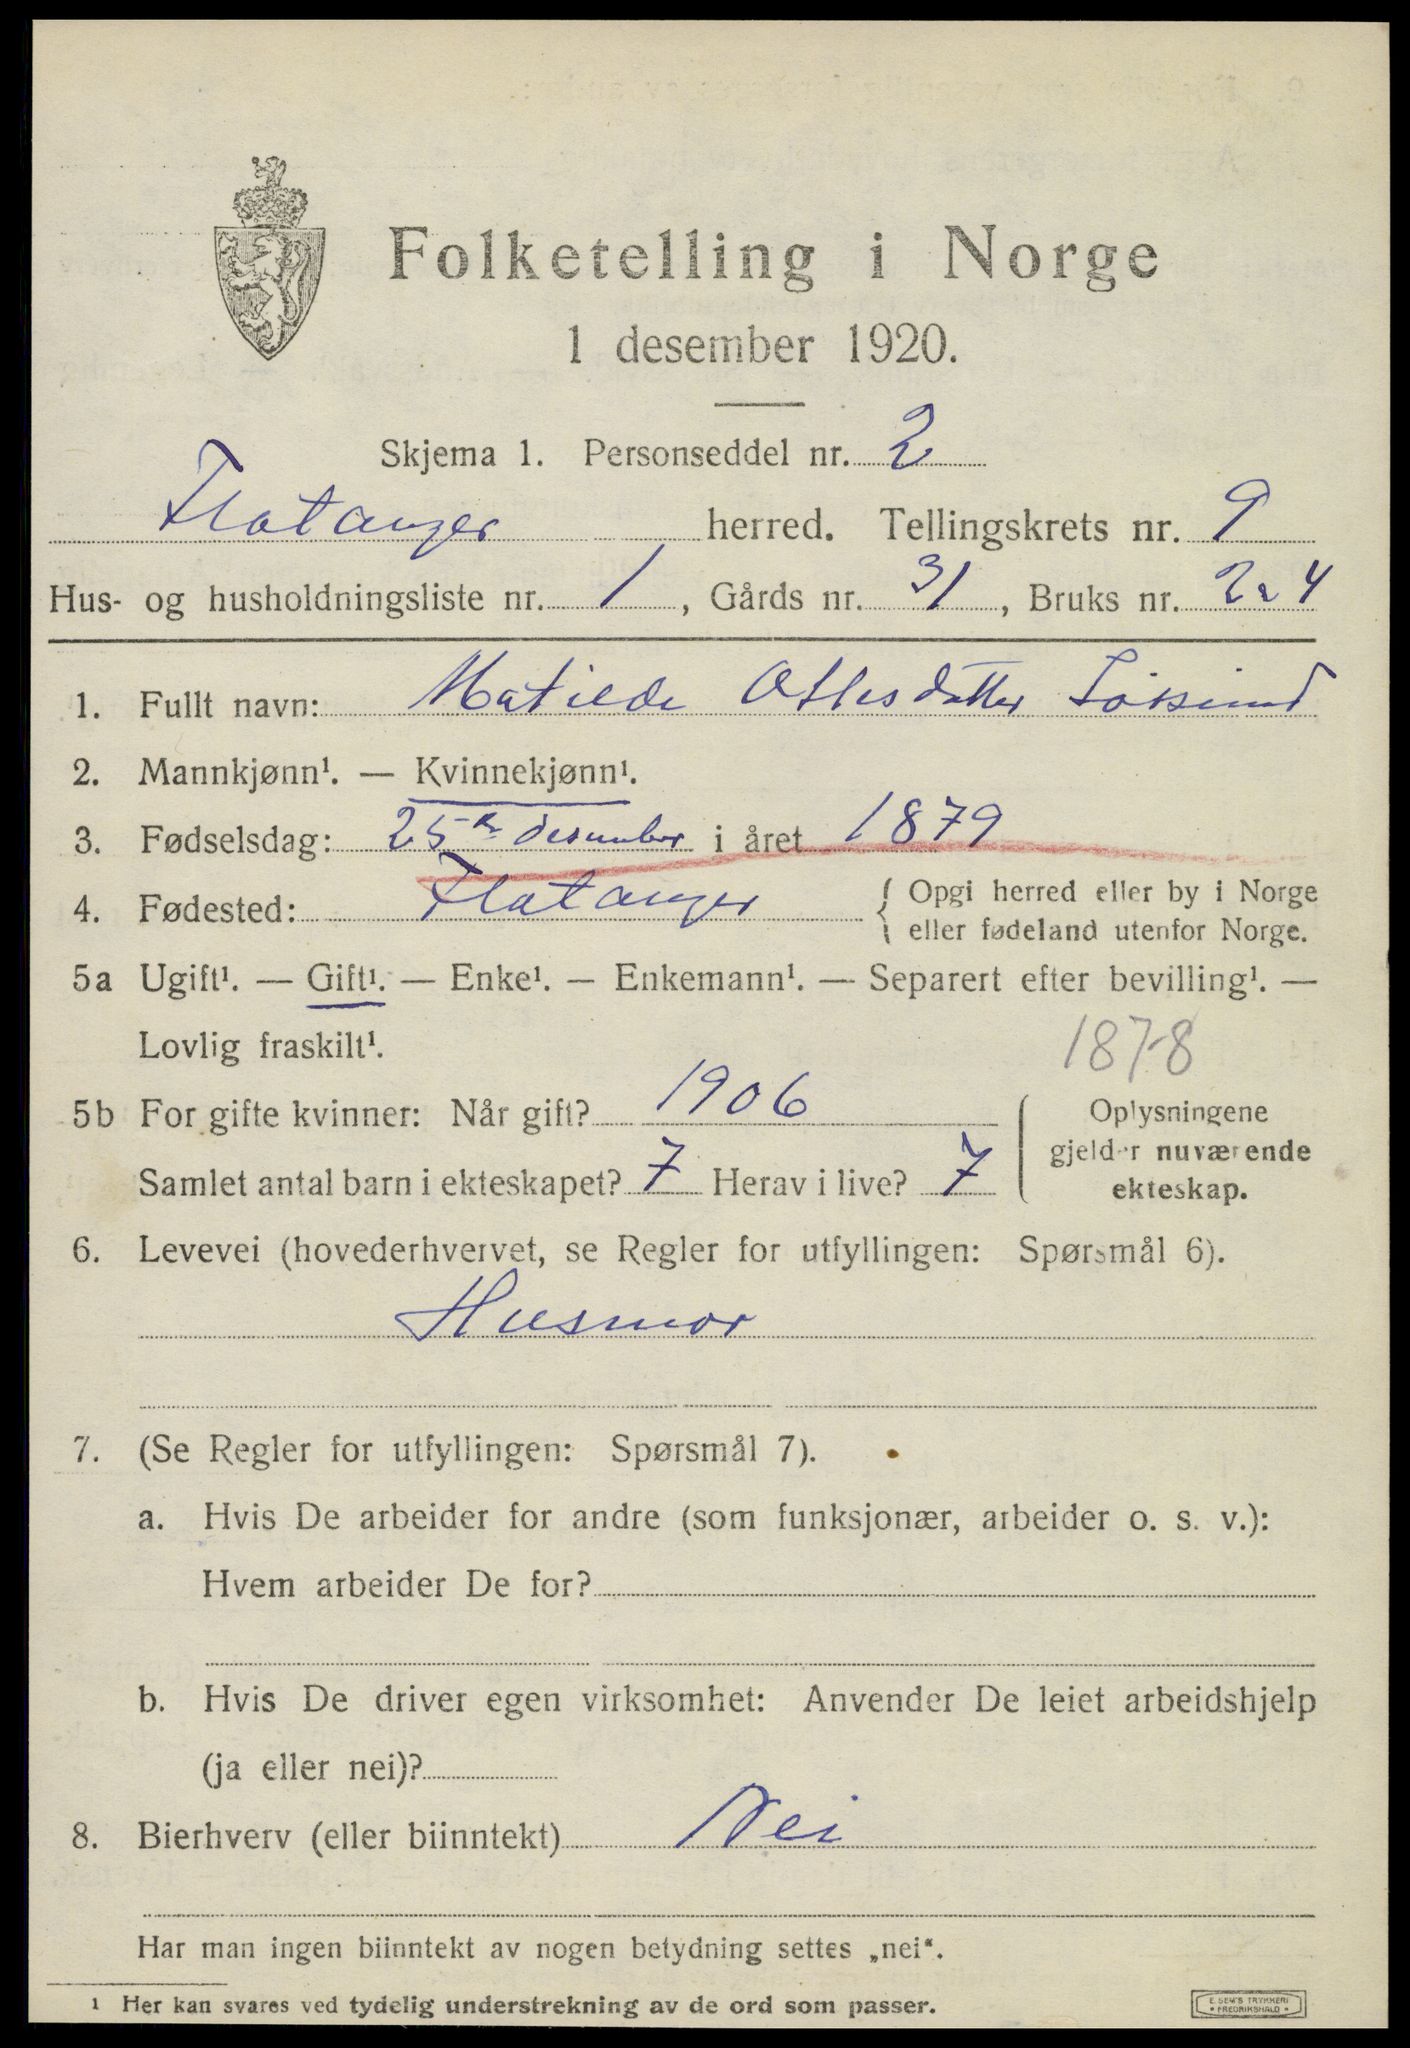 Folketelling i Norge
1 desember 1920.
Skjema 1. Personseddel nr. 2
Flatanger herred. Tellingskrets nr. 9
Hus- og husholdningsliste nr. 1, Gårds nr. 31, Bruks nr. 2 & 4
1. Fullt navn: Matilde Ottesdatter
2. Mannkjønn¹. — Kvinnekjønn¹.
3. Fødselsdag: 25de desember i året 1879
4. Fødested: Flatanger { Opgi herred eller by i Norge
eller fødeland utenfor Norge.
5a Ugift¹. — Gift¹. — Enke¹. — Enkemann¹. — Separert efter bevilling¹. —
Lovlig fraskilt¹.
1878
5b For gifte kvinner: Når gift? 1906
Samlet antal barn i ekteskapet? 7 Herav i live? 7
Oplysningene
gjelder nuværende
ekteskap.
6. Levevei (hovederhvervet, se Regler for utfyllingen: Spørsmål 6).
Husmor
7. (Se Regler for utfyllingen: Spørsmål 7).
a. Hvis De arbeider for andre (som funksjonær, arbeider o. s. v.):
Hvem arbeider De for?
b. Hvis De driver egen virksomhet: Anvender De leiet arbeidshjelp
(ja eller nei)?
8. Bierhverv (eller biinntekt) Nei
Har man ingen biinntekt av nogen betydning settes „nei“.
1 Her kan svares ved tydelig understrekning av de ord som passer.
E. SEM'S TRYKKERI
• FREDRIKSHALD •